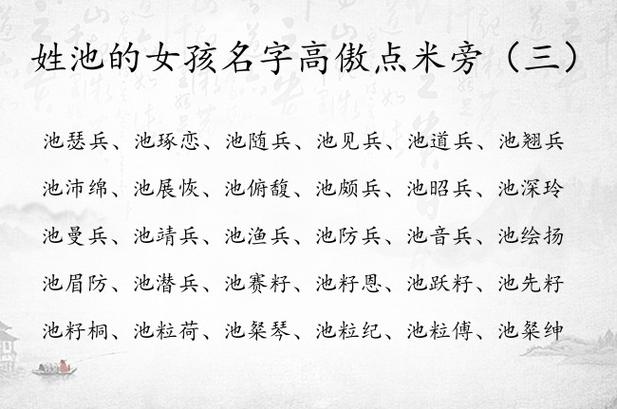 姓池的女孩名字高傲点米旁（三）
池瑟兵、池琢恋、池随兵、池见兵、池道兵、池翘兵
池沛绵、池展恢、池俯馥、池颇兵、池昭兵、池深玲
池曼兵、池靖兵、池渔兵、池防兵、池音兵、池绘扬
池眉防、池潜兵、池赛籽、池籽恩、池跃籽、池先籽
池籽桐、池粒荷、池粲琴、池粒纪、池粒傅、池粲绅